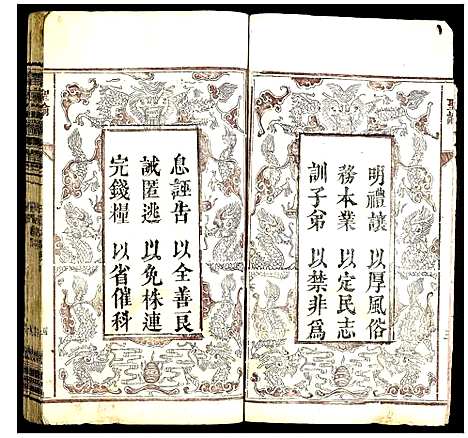 聖諭
明禮讓 以厚風俗
務本業 以定民志
訓子弟 以禁非為
息誣告 以全善良
誡匿逃 以免株連
完錢糧 以省催科
聖諭